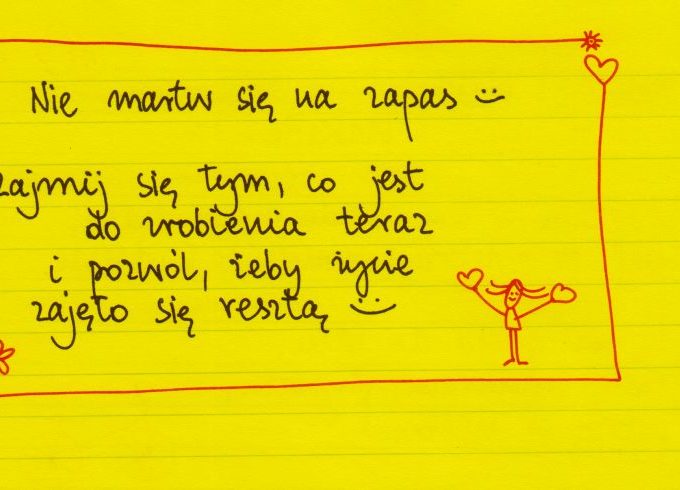 Nie martw się na zapas :)
zajmij się tym, co jest
do zrobienia teraz
i pozwól, żeby życie
zajęło się resztą :)